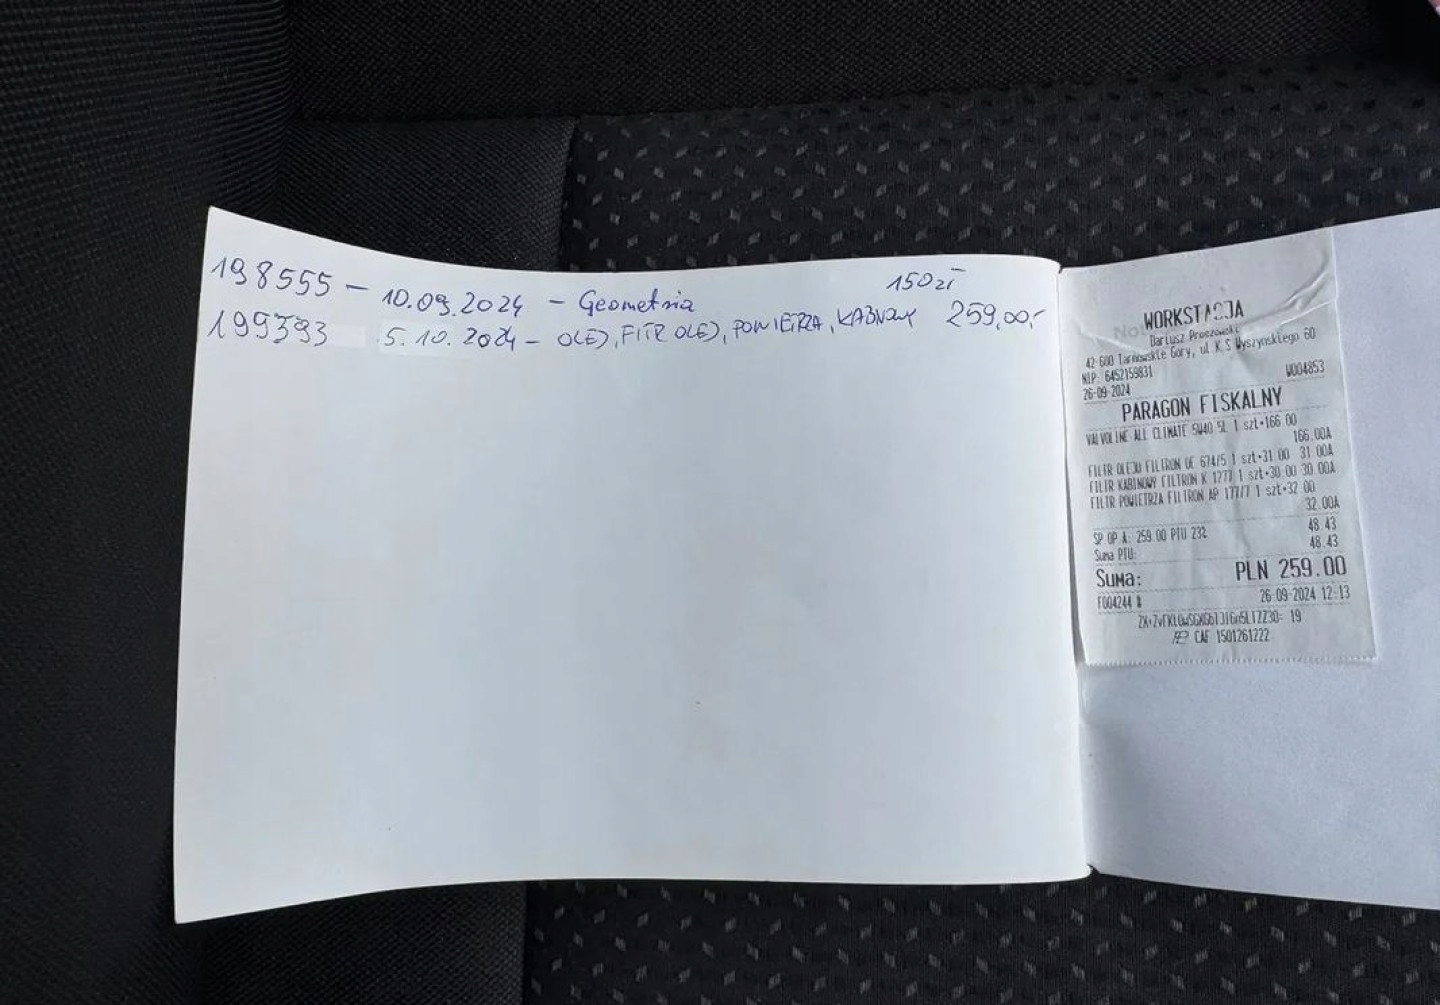 198555 - 10.09.2024 - Geometria 150zł
199393 5.10.2024 - OLEJ, FILTR OLEJ, POWIETRZA, KABINOWY 259,00,-
WORKSTACJA
Dariusz
42-600 Tarnowskie Góry, ul. K.S Wyszyńskiego 60
NIP: 6452159831
26-09-2024 W004853
PARAGON FISKALNY
VALVOLINE ALL CLIMATE 5W40 5L 1 szt*166.00
166.00A
FILTR OLEJU FILTRON OE 674/5 1 szt*31.00 31.00A
FILTR KABINOWY FILTRON K 1277 1 szt*30.00 30.00A
FILTR POWIETRZA FILTRON AP 177/7 1 szt*32.00
32.00A
SP.OP.A: 259.00 PTU 23% 48.43
Suma PTU: 48.43
Suma: PLN 259.00
F004244 26-09-2024 12:13
CAF 1501261222